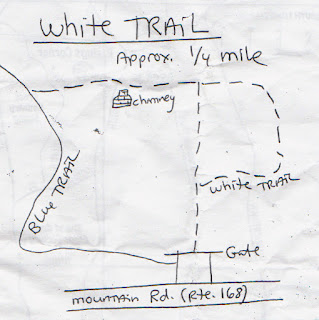 White TRAIL
Approx. 1/4 mile
chimney
White TRAIL
Blue TRAIL
Gate
mountain Rd. (Rte. 168)